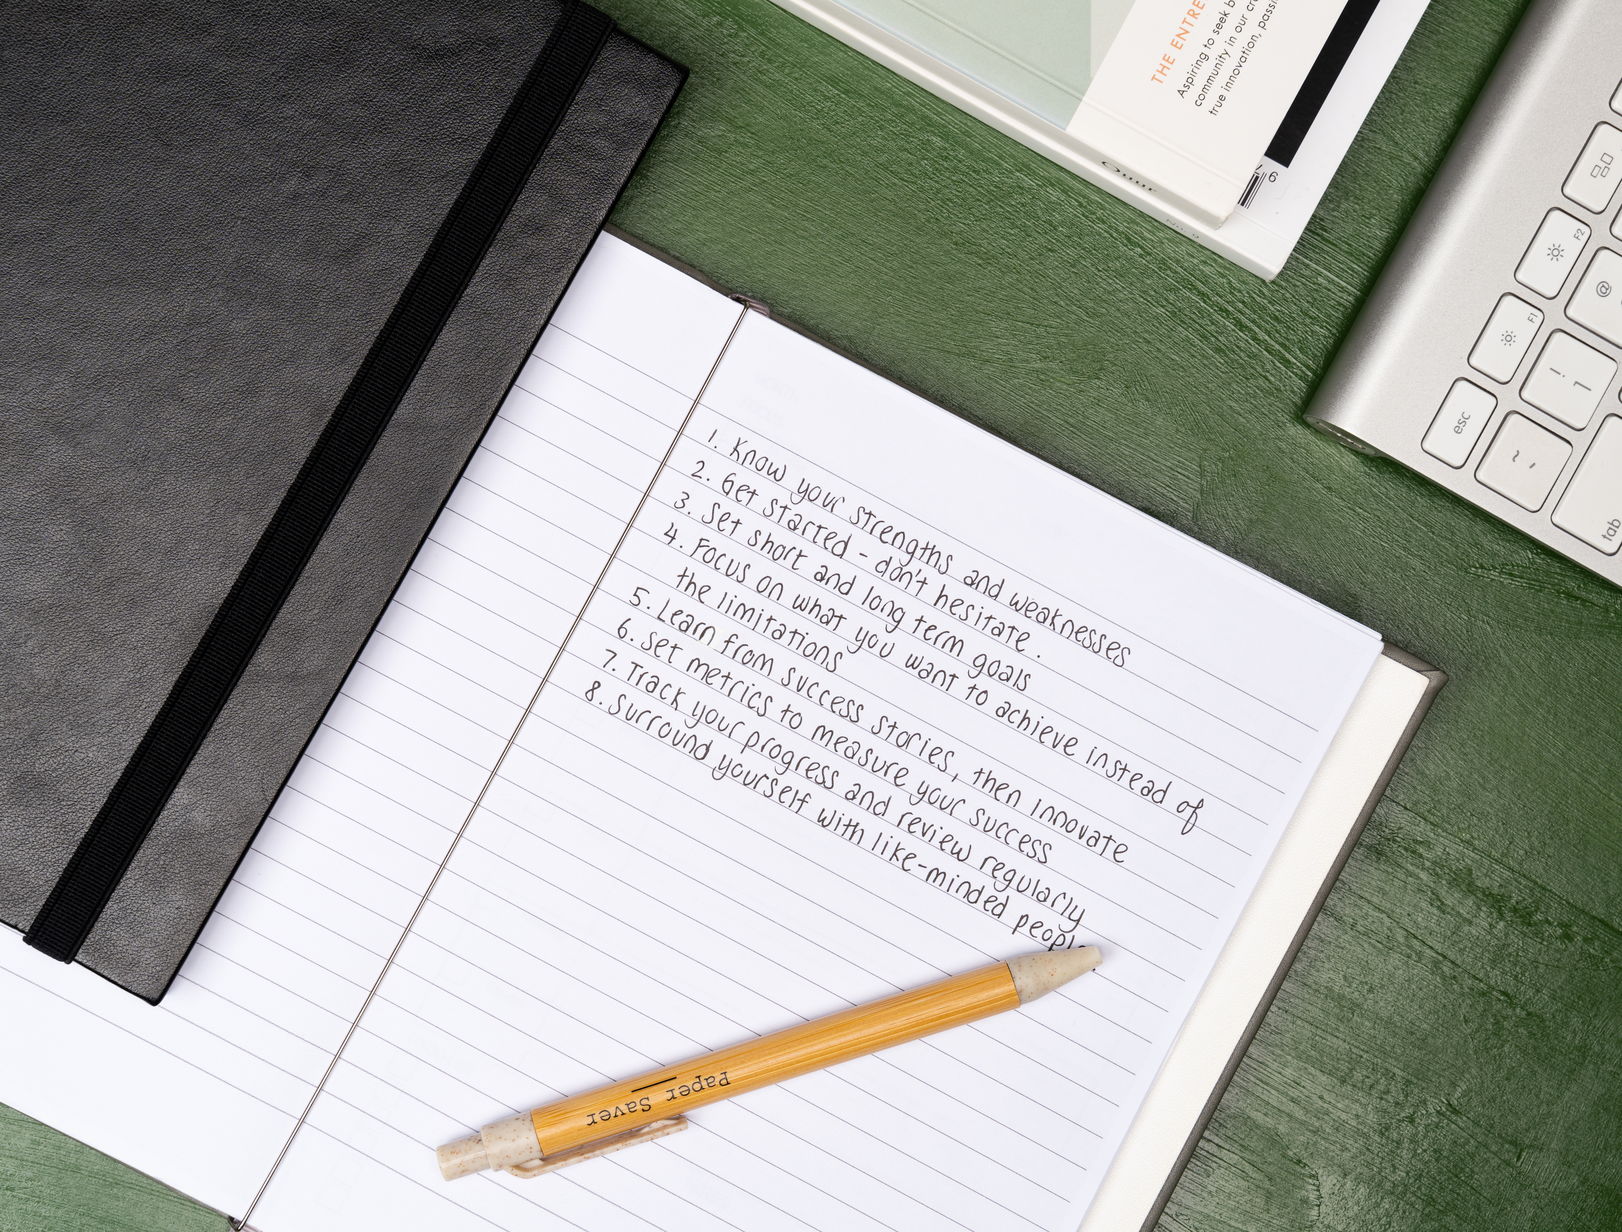 1. Know your strengths and weaknesses
2. Get started - don't hesitate.
3. Set short and long term goals
4. Focus on what you want to achieve instead of
the limitations
5. Learn from success stories, then innovate
6. Set metrics to measure your success
7. Track your progress and review regularly
8. Surround yourself with like-minded people
Paper Saver
THE ENTRE
Aspiring to seek b
community in our cr
true innovation, passi
6
F2
F1
@
esc
tab